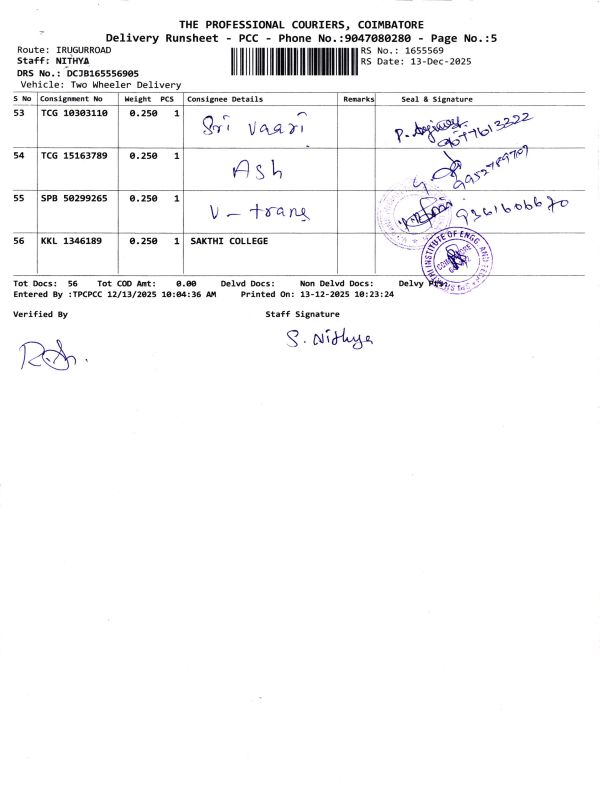 THE PROFESSIONAL COURIERS, COIMBATORE
Delivery Runsheet - PCC - Phone No.:9047080280 - Page No.:5
Route: IRUGURROAD
RS No.: 1655569
Staff: NITHYA
RS Date: 13-Dec-2025
DRS No.: DCJB165556905
Vehicle: Two Wheeler Delivery
S No Consignment No Weight PCS Consignee Details Remarks Seal & Signature
53 TCG 10303110 0.250 1 Sri Vaari 9677613222
54 TCG 15163789 0.250 1 Ash 9952789709
55 SPB 50299265 0.250 1 V-trans 9361606670
56 KKL 1346189 0.250 1 SAKTHI COLLEGE
INSTITUTE OF ENGG. AND
Tot Docs: 56 Tot COD Amt: 0.00 Delvd Docs: Non Delvd Docs: Delvy
Entered By :TPCPCC 12/13/2025 10:04:36 AM Printed On: 13-12-2025 10:23:24
Verified By Staff Signature
S. Nithya